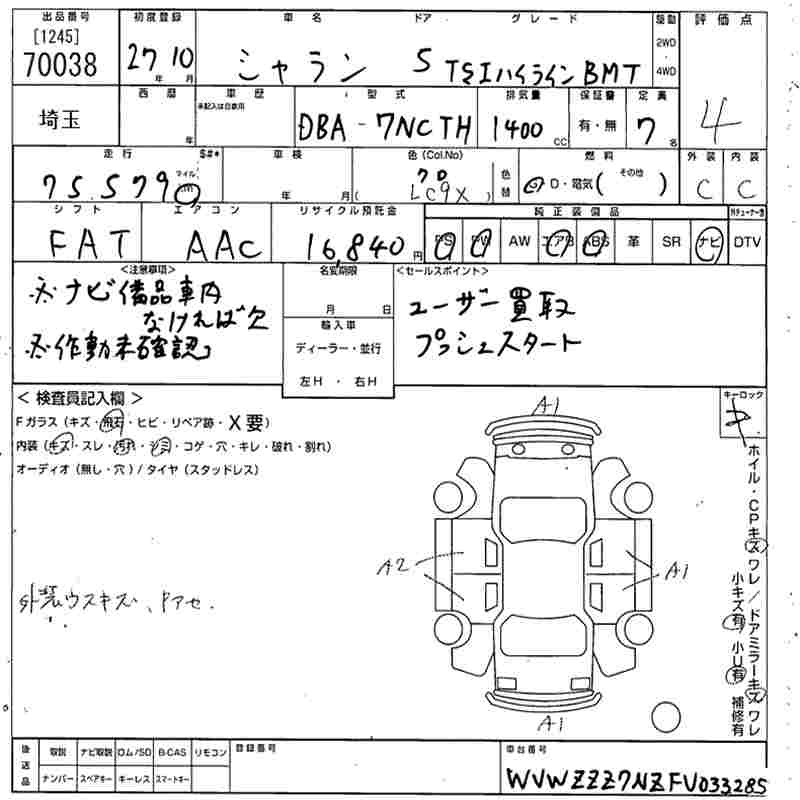 出品番号 初度登録 車名 ドア グレード 駆動 評価点
[1245]
70038 27年 10月 シャラン 5 TSIハイラインBMT 2WD・4WD 4
埼玉 西暦 年 車歴 型式 排気量 保証書 定員
未記入は自家用 DBA-7NCTH 1400cc 有・無 7名
走行 S#* 車検 色(Col.No) 色替 燃料 外装 内装
75,579 マイル 年 月 クロ (LC9X) G・D・電気(その他) C C
シフト エアコン リサイクル預託金 純正装備品
FAT AAC 16,840円 PS PW AW エアB ABS 革 SR ナビ DTV
<注意事項> 名変期限 <セールスポイント>
※ナビ備品車内 月 日 ユーザー買取
なければ欠 輸入車 プッシュスタート
※作動未確認 ディーラー・並行
左H・右H
<検査員記入欄> キーロック
Fガラス(キズ・飛石・ヒビ・リペア跡・X要)
内装(キズ・スレ・汚れ・シミ・コゲ・穴・キレ・破れ・割れ)
オーディオ(無し・穴)/タイヤ(スタッドレス)
A1
A2 A1
A1
外装ウスキズ、ドアセ.
ホイル・CPキズワレ/ドアミラーキズワレ
小キズ有 小U有 補修有
後送品 取説 ナビ取説 ロム/SD B-CAS リモコン 登録番号 車台番号
ナンバー スペアキー キーレス スマートキー WVWZZZ7NZFV033285